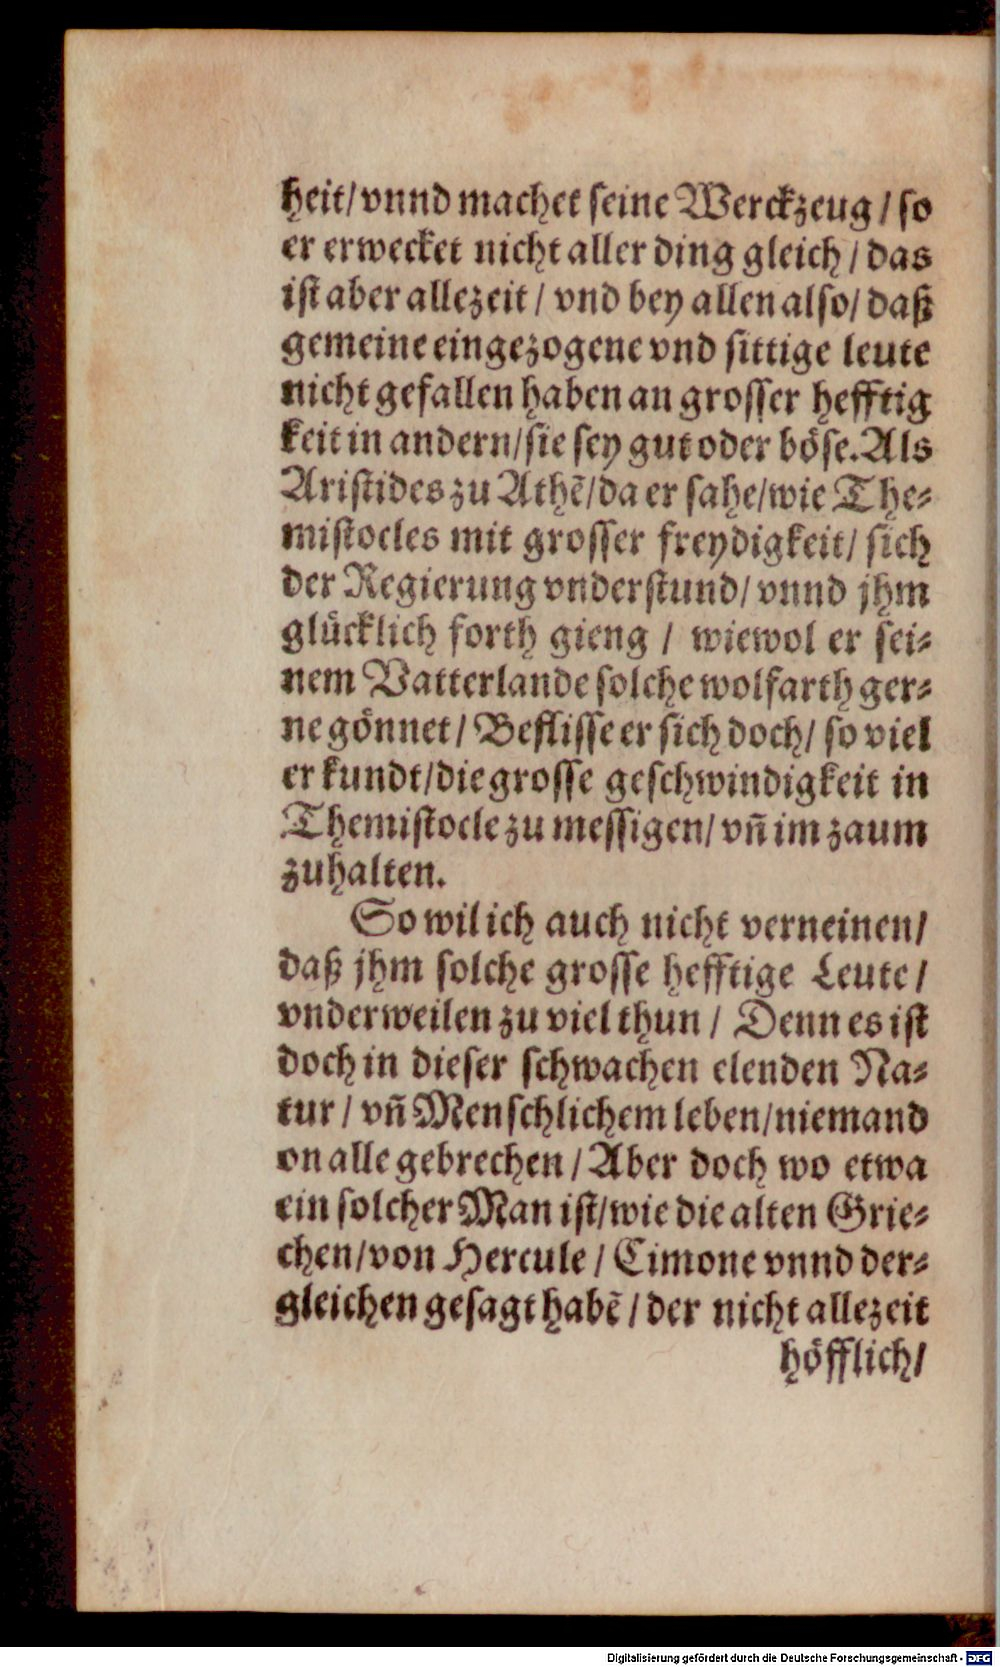 heit/ vnnd machet seine Werckzeug / so
er erwecket nicht aller ding gleich / das
ist aber allezeit / vnd bey allen also/ daß
gemeine eingezogene vnd sittige leute
nicht gefallen haben an grosser hefftig
keit in andern/ sie sey gut oder böse. Als
Aristides zu Athē/ da er sahe/ wie The⸗
mistocles mit grosser freydigkeit/ sich
der Regierung vnderstund/ vnnd jhm
glücklich forth gieng / wiewol er sei⸗
nem Vatterlande solche wolfarth ger⸗
ne gönnet/ Beflisse er sich doch/ so viel
er kundt/ die grosse geschwindigkeit in
Themistocle zu messigen/ vñ im zaum
zuhalten.
So wil ich auch nicht verneinen/
daß jhm solche grosse hefftige Leute /
vnderweilen zu viel thun / Denn es ist
doch in dieser schwachen elenden Na⸗
tur / vñ Menschlichem leben/ niemand
on alle gebrechen / Aber doch wo etwa
ein solcher Man ist/ wie die alten Grie⸗
chen/ von Hercule / Cimone vnnd der⸗
gleichen gesagt habē / der nicht allezeit
höfflich/
Digitalisierung gefördert durch die Deutsche Forschungsgemeinschaft - DFG